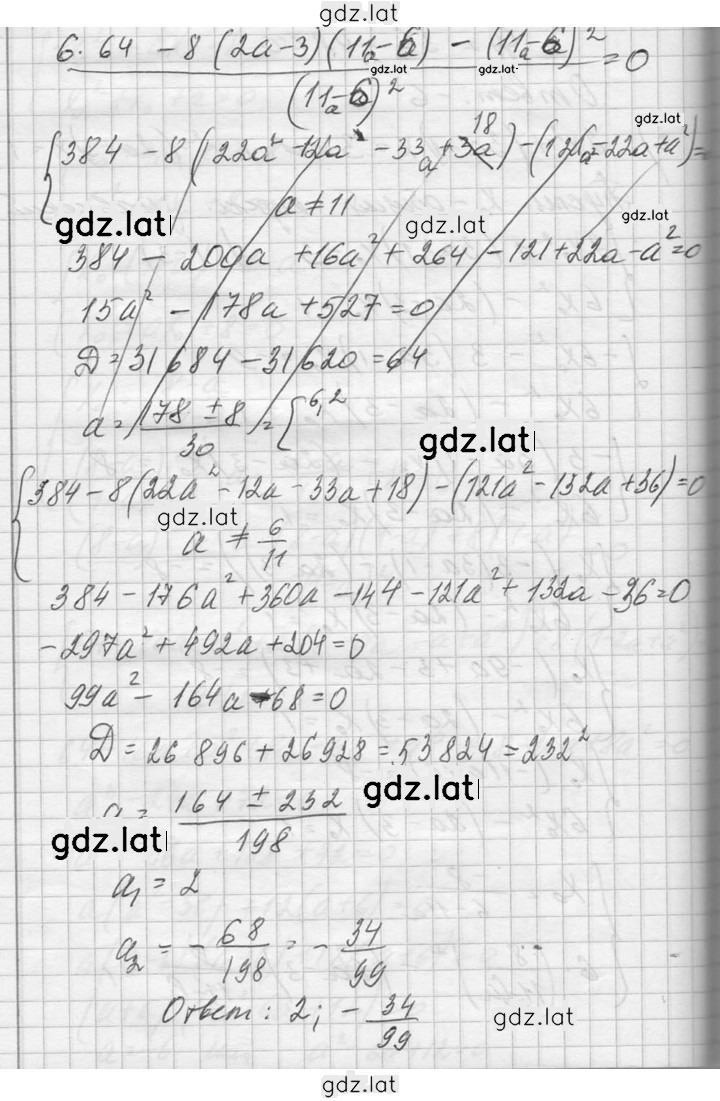 gdz.lat
6·64 - 8(2a-3)(11a-6) - (11a-6)² = 0
gdz.lat gdz.lat gdz.lat
(11a-6)²
384 - 8(22a² - 12a - 33a + 18) - (121a² - 22a + a²) =
gdz.lat a ≠ 11 gdz.lat
384 - 200a + 16a² + 264 - 121 + 22a - a² = 0
15a² - 178a + 527 = 0
D = 31684 - 31620 = 64
a = (178 ± 8)/30 = { 6,2
gdz.lat
{ 384 - 8(22a² - 12a - 33a + 18) - (121a² - 132a + 36) = 0
gdz.lat a ≠ 6/11
384 - 176a² + 360a - 144 - 121a² + 132a - 36 = 0
-297a² + 492a + 204 = 0
99a² - 164a - 68 = 0
D = 26896 + 26928 = 53824 = 232²
a = (164 ± 232)/198 gdz.lat
gdz.lat
a₁ = 2
a₂ = -68/198 = -34/99
Ответ: 2; -34/99 gdz.lat
gdz.lat